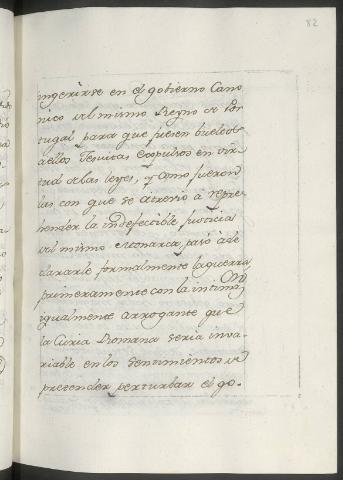 82
ingerirse en el gobierno Cano
nico del mismo Reyno de Por
tugal para que fuesen bueltos
aellos Jesuitas Expulsos en vir
tud de las leyes, y como fueron
las con que se atrevio a repre
hender la indefectible justicia
del mismo Monarca, pasó à de
clararle formalmente la guerra
primeramente con la intima on
igualmente arrogante que
la Curia Romana seria inva-
riable en los sentimientos de
pretender perturbar el go-